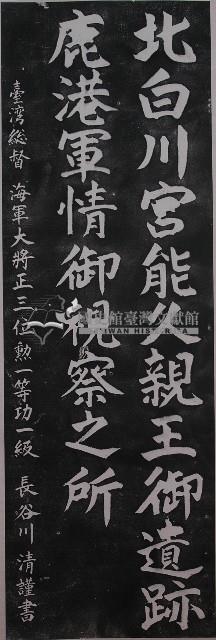 北白川宮能久親王御遺跡
鹿港軍情御視察之所
臺灣総督 海軍大將正三位勲一等功一級 長谷川清謹書